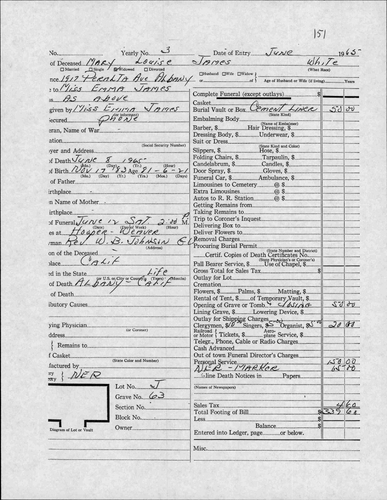 151
No. Yearly No. 3 Date of Entry June 1965
of Deceased Mary Louise James White
Married Single Widowed Divorced Husband Wife Widow Age of Husband or Wife (if living) Years
nce 1917 Peralta Ave Albany
to Miss Emma James Complete Funeral (except outlays) $
Casket
ss As Above Burial Vault or Box Cement Liner 50.00
(State Kind)
given by Miss Emma James Embalming Body
(Name of Embalmer)
ecured Phone Barber, $ Hair Dressing, $
Dressing Body, $ Underwear, $
eran, Name of War Suit or Dress
(State Kind and Color)
(Social Security Number) Slippers, $ Hose, $
yer and Address Folding Chairs, $ Tarpaulin, $
f Death June 8 1965 Candelabrum, $ Candles, $
of Birth Nov 17 '83 Age 81-6-21 Door Spray, $ Gloves, $
of Father Funeral Car, $ Ambulance, $
Limousines to Cemetery @ $
irthplace Extra Limousines @ $
Autos to R. R. Station @ $
of Mother Getting Remains from
Taking Remains to
irthplace Trip to Coroner's Inquest
of Funeral June 12 Sat 2:00 P M Delivering Box to
es at Hooper Weaver Deliver Flowers to
man Rev W. B. Johnson Removal Charges
Procuring Burial Permit
on of the Deceased (State Number and District)
Certif. Copies of Death Certificates No.
place Calif Pall Bearer Service, $ Use of Chapel, $
ed in the State Life Gross Total for Sales Tax $
Outlay for Lot
of Death Albany Calif Cremation
of Death Flowers, $ Palms, $ Matting, $
Rental of Tent, $ of Temporary Vault, $
ibutory Causes Opening of Grave or Tomb 50.00
Lining Grave, $ Lowering Device, $
Outlay for Shipping Charges
ying Physician Clergymen, $ Singers, $ Organist, $ 20.00
(or Coroner) Railroad or Motor Tickets, $ Aeroplane Service, $
Remains to Telegr., Phone, Cable or Radio Charges
Cash Advanced
f Casket Out of town Funeral Director's Charges
(State Color and Number) Personal Service 150.00
factured by NCR - Marker 65.00
NCR line Death Notices in Papers
Lot No. J (Names of Newspapers)
Grave No. 63
Section No. Sales Tax 4.60
Total Footing of Bill $339.60
Block No. Less
Owner Balance $
Diagram of Lot or Vault Entered into Ledger, page or below:
Misc.